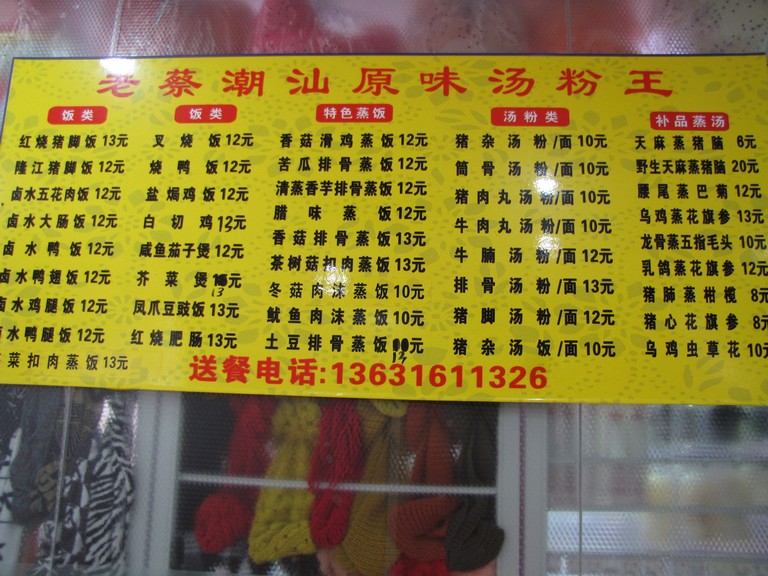 老蔡潮汕原味汤粉王
饭类
红烧猪脚饭13元
隆江猪脚饭12元
卤水五花肉饭12元
卤水大肠饭12元
卤水鸭饭12元
卤水鸭翅饭12元
卤水鸡腿饭12元
水鸭腿饭12元
菜扣肉蒸饭13元
饭类
叉烧饭12元
烧鸭饭12元
盐焗鸡饭12元
白切鸡12元
咸鱼茄子煲12元
芥菜煲13元
凤爪豆豉饭13元
红烧肥肠13元
特色蒸饭
香菇滑鸡蒸饭12元
苦瓜排骨蒸饭12元
清蒸香芋排骨蒸饭12元
腊味蒸饭12元
香菇排骨蒸饭13元
茶树菇扣肉蒸饭13元
冬菇肉沫蒸饭10元
鱿鱼肉沫蒸饭10元
土豆排骨蒸饭13元
汤粉类
猪杂汤粉/面10元
筒骨汤粉/面10元
猪肉丸汤粉/面10元
牛肉丸汤粉/面10元
牛腩汤粉/面12元
排骨汤粉/面13元
猪脚汤粉/面12元
猪杂汤饭/面10元
补品蒸汤
天麻蒸猪脑6元
野生天麻蒸猪脑20元
腰尾蒸巴菊12元
乌鸡蒸花旗参13元
龙骨蒸五指毛头10元
乳鸽蒸花旗参12元
猪肺蒸柑榄8元
猪心花旗参8元
乌鸡虫草花10元
送餐电话:13631611326